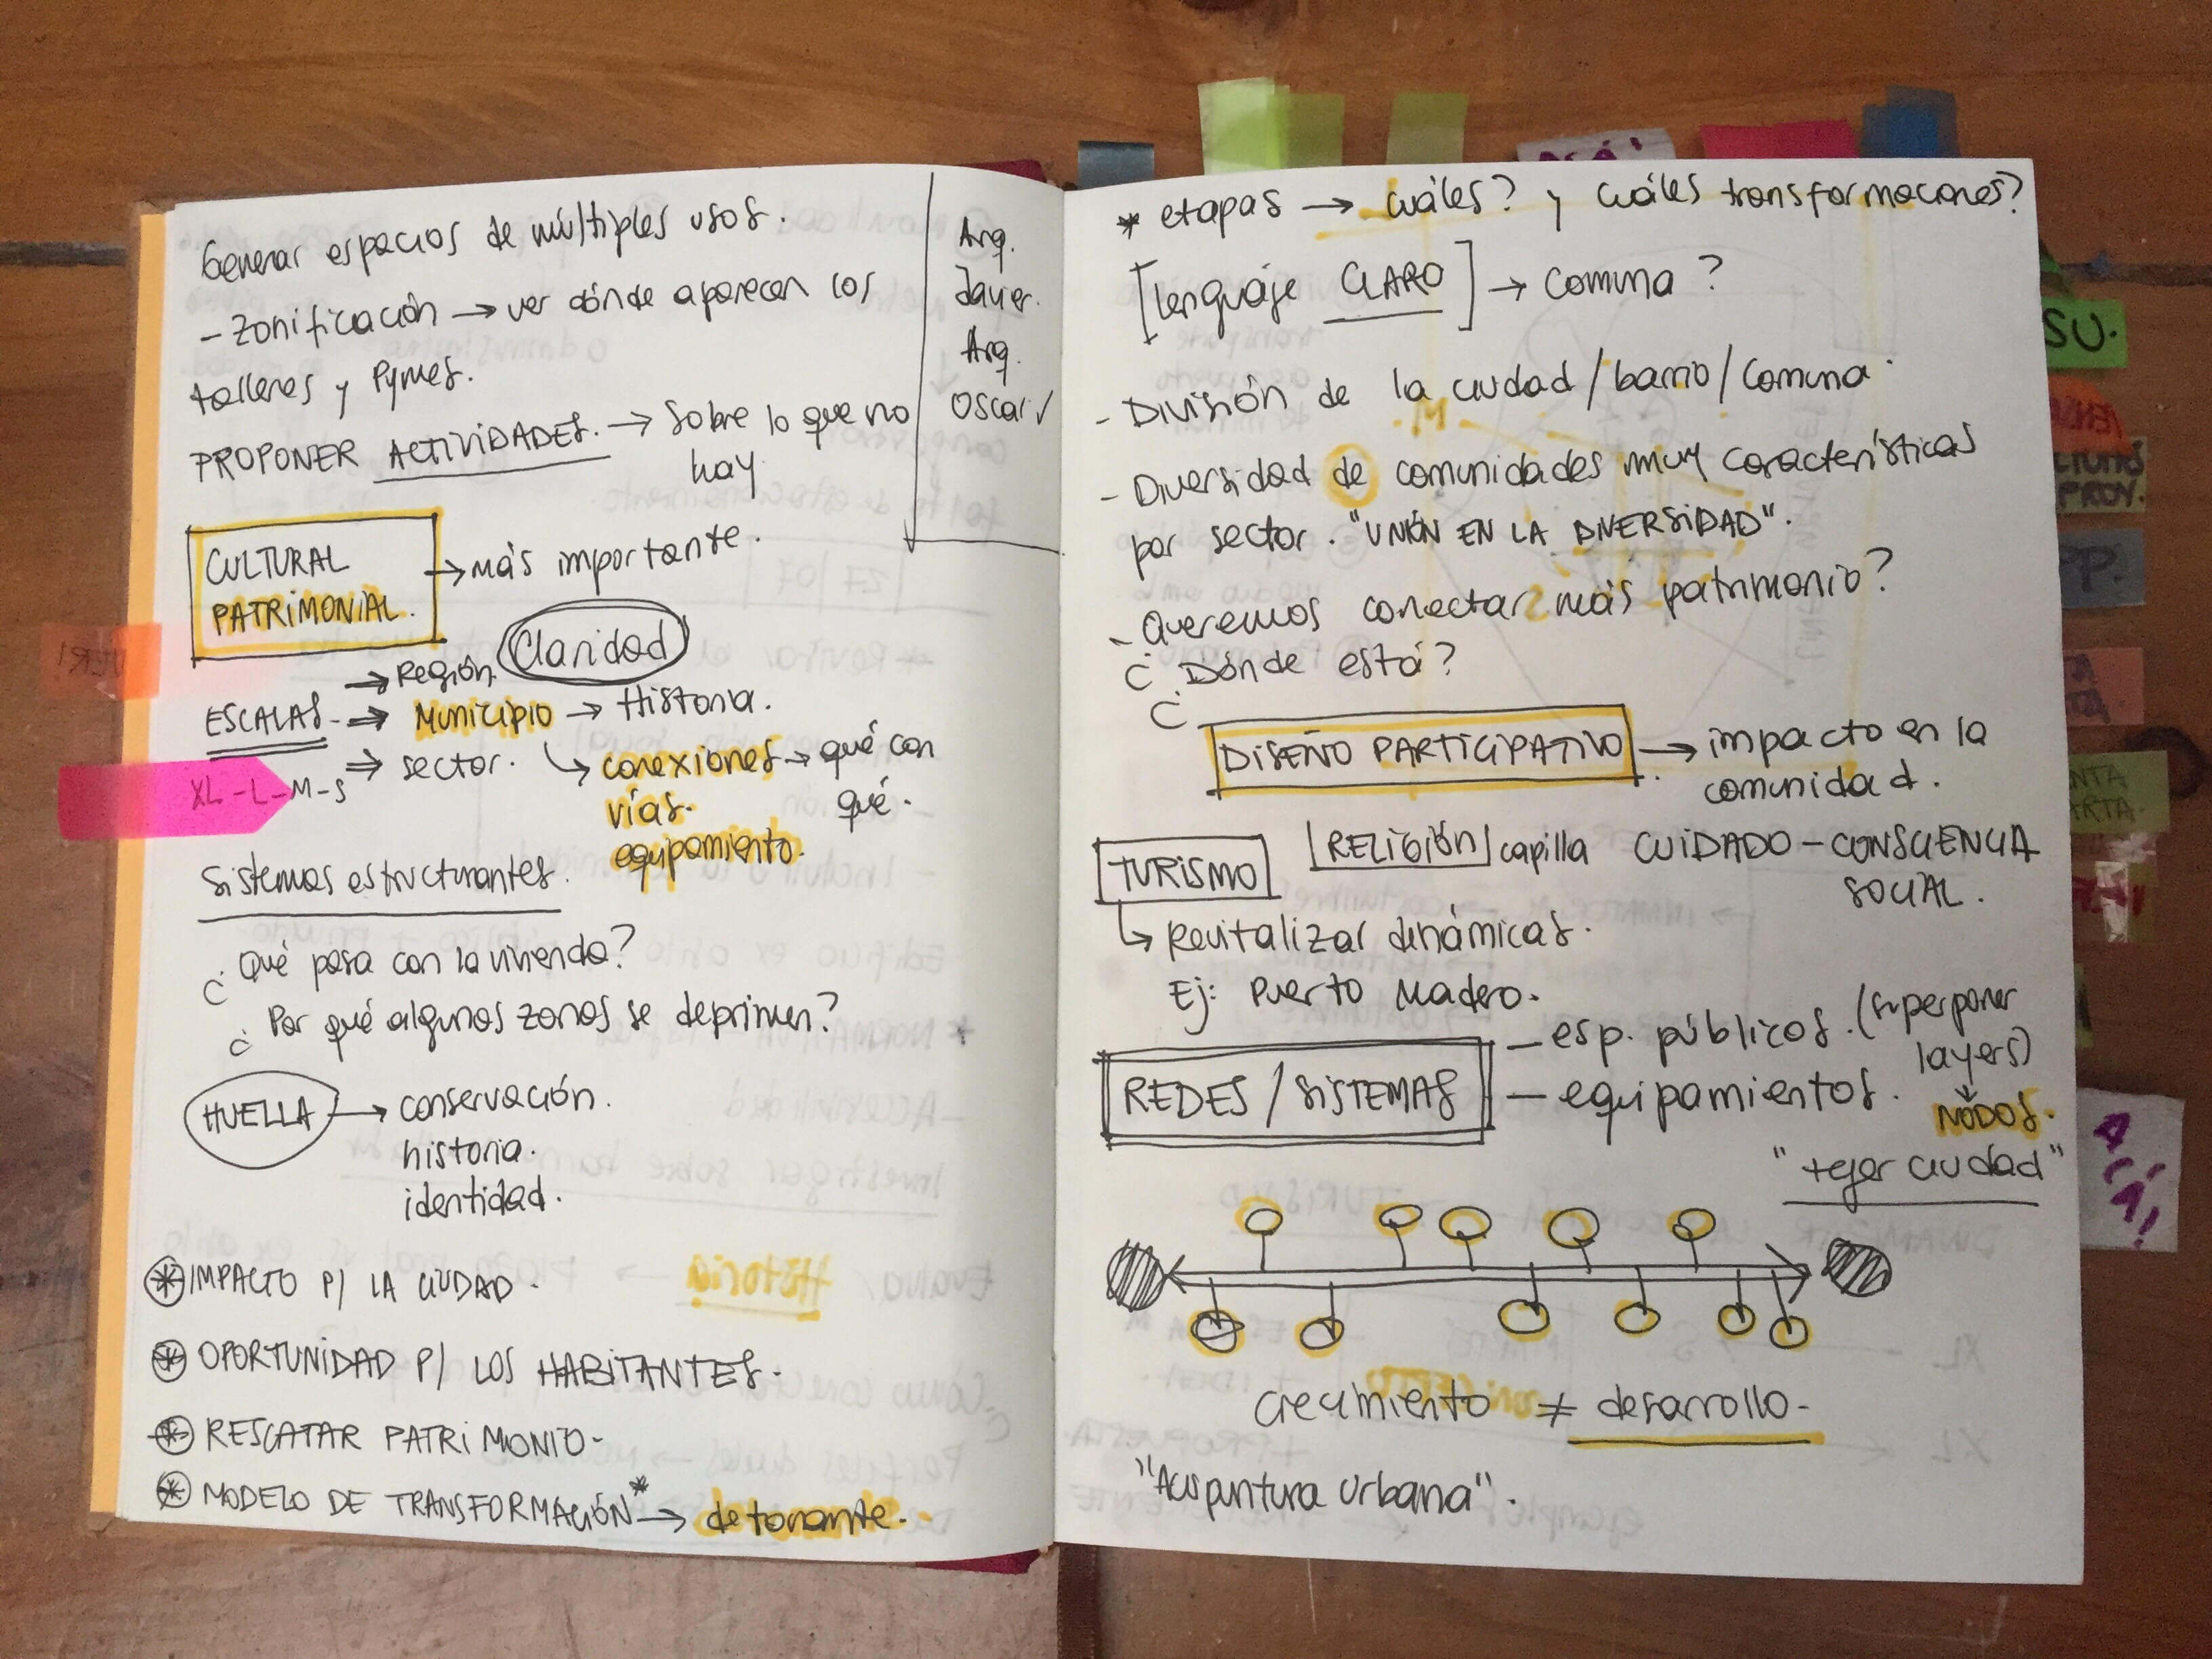 Generar espacios de múltiples usos.
- Zonificación → ver dónde aparecen los
talleres y Pymes.
PROPONER ACTIVIDADES. → Sobre lo que no
hay
Arq.
Javier.
Arq.
Oscar ✓
CULTURAL
PATRIMONIAL.
→ más importante.
Claridad
→ Región.
ESCALAS → Municipio → Historia.
⇒ sector. ↳ conexiones → qué con
XL-L-M-S
vías. qué.
equipamiento.
Sistemas estructurantes.
¿Qué pasa con la vivienda?
¿Por qué algunas zonas se deprimen?
HUELLA → conservación.
historia.
identidad.
* IMPACTO P/ LA CIUDAD -
* OPORTUNIDAD P/ LOS HABITANTES.
* RESCATAR PATRIMONIO-
* MODELO DE TRANSFORMACIÓN* → detonante.
* etapas → cuáles? y cuáles transformaciones?
[lenguaje CLARO] → Comuna?
- División de la ciudad/barrio/comuna
- Diversidad de comunidades muy características
por sector. "UNIÓN EN LA DIVERSIDAD".
- Queremos conectar más patrimonio?
¿Dónde está?
¿
DISEÑO PARTICIPATIVO → impacto en la
comunidad.
TURISMO RELIGIÓN capilla CUIDADO - CONSCIENCIA
SOCIAL.
↳ Revitalizar dinámicas.
Ej: Puerto Madero.
REDES / SISTEMAS
- esp. públicos. (superponer
layers)
- equipamientos.
↓
NODOS.
"tejer ciudad"
crecimiento ≠ desarrollo-
"Acupuntura Urbana".
SU.
PROY.
PP.
ACÁ!